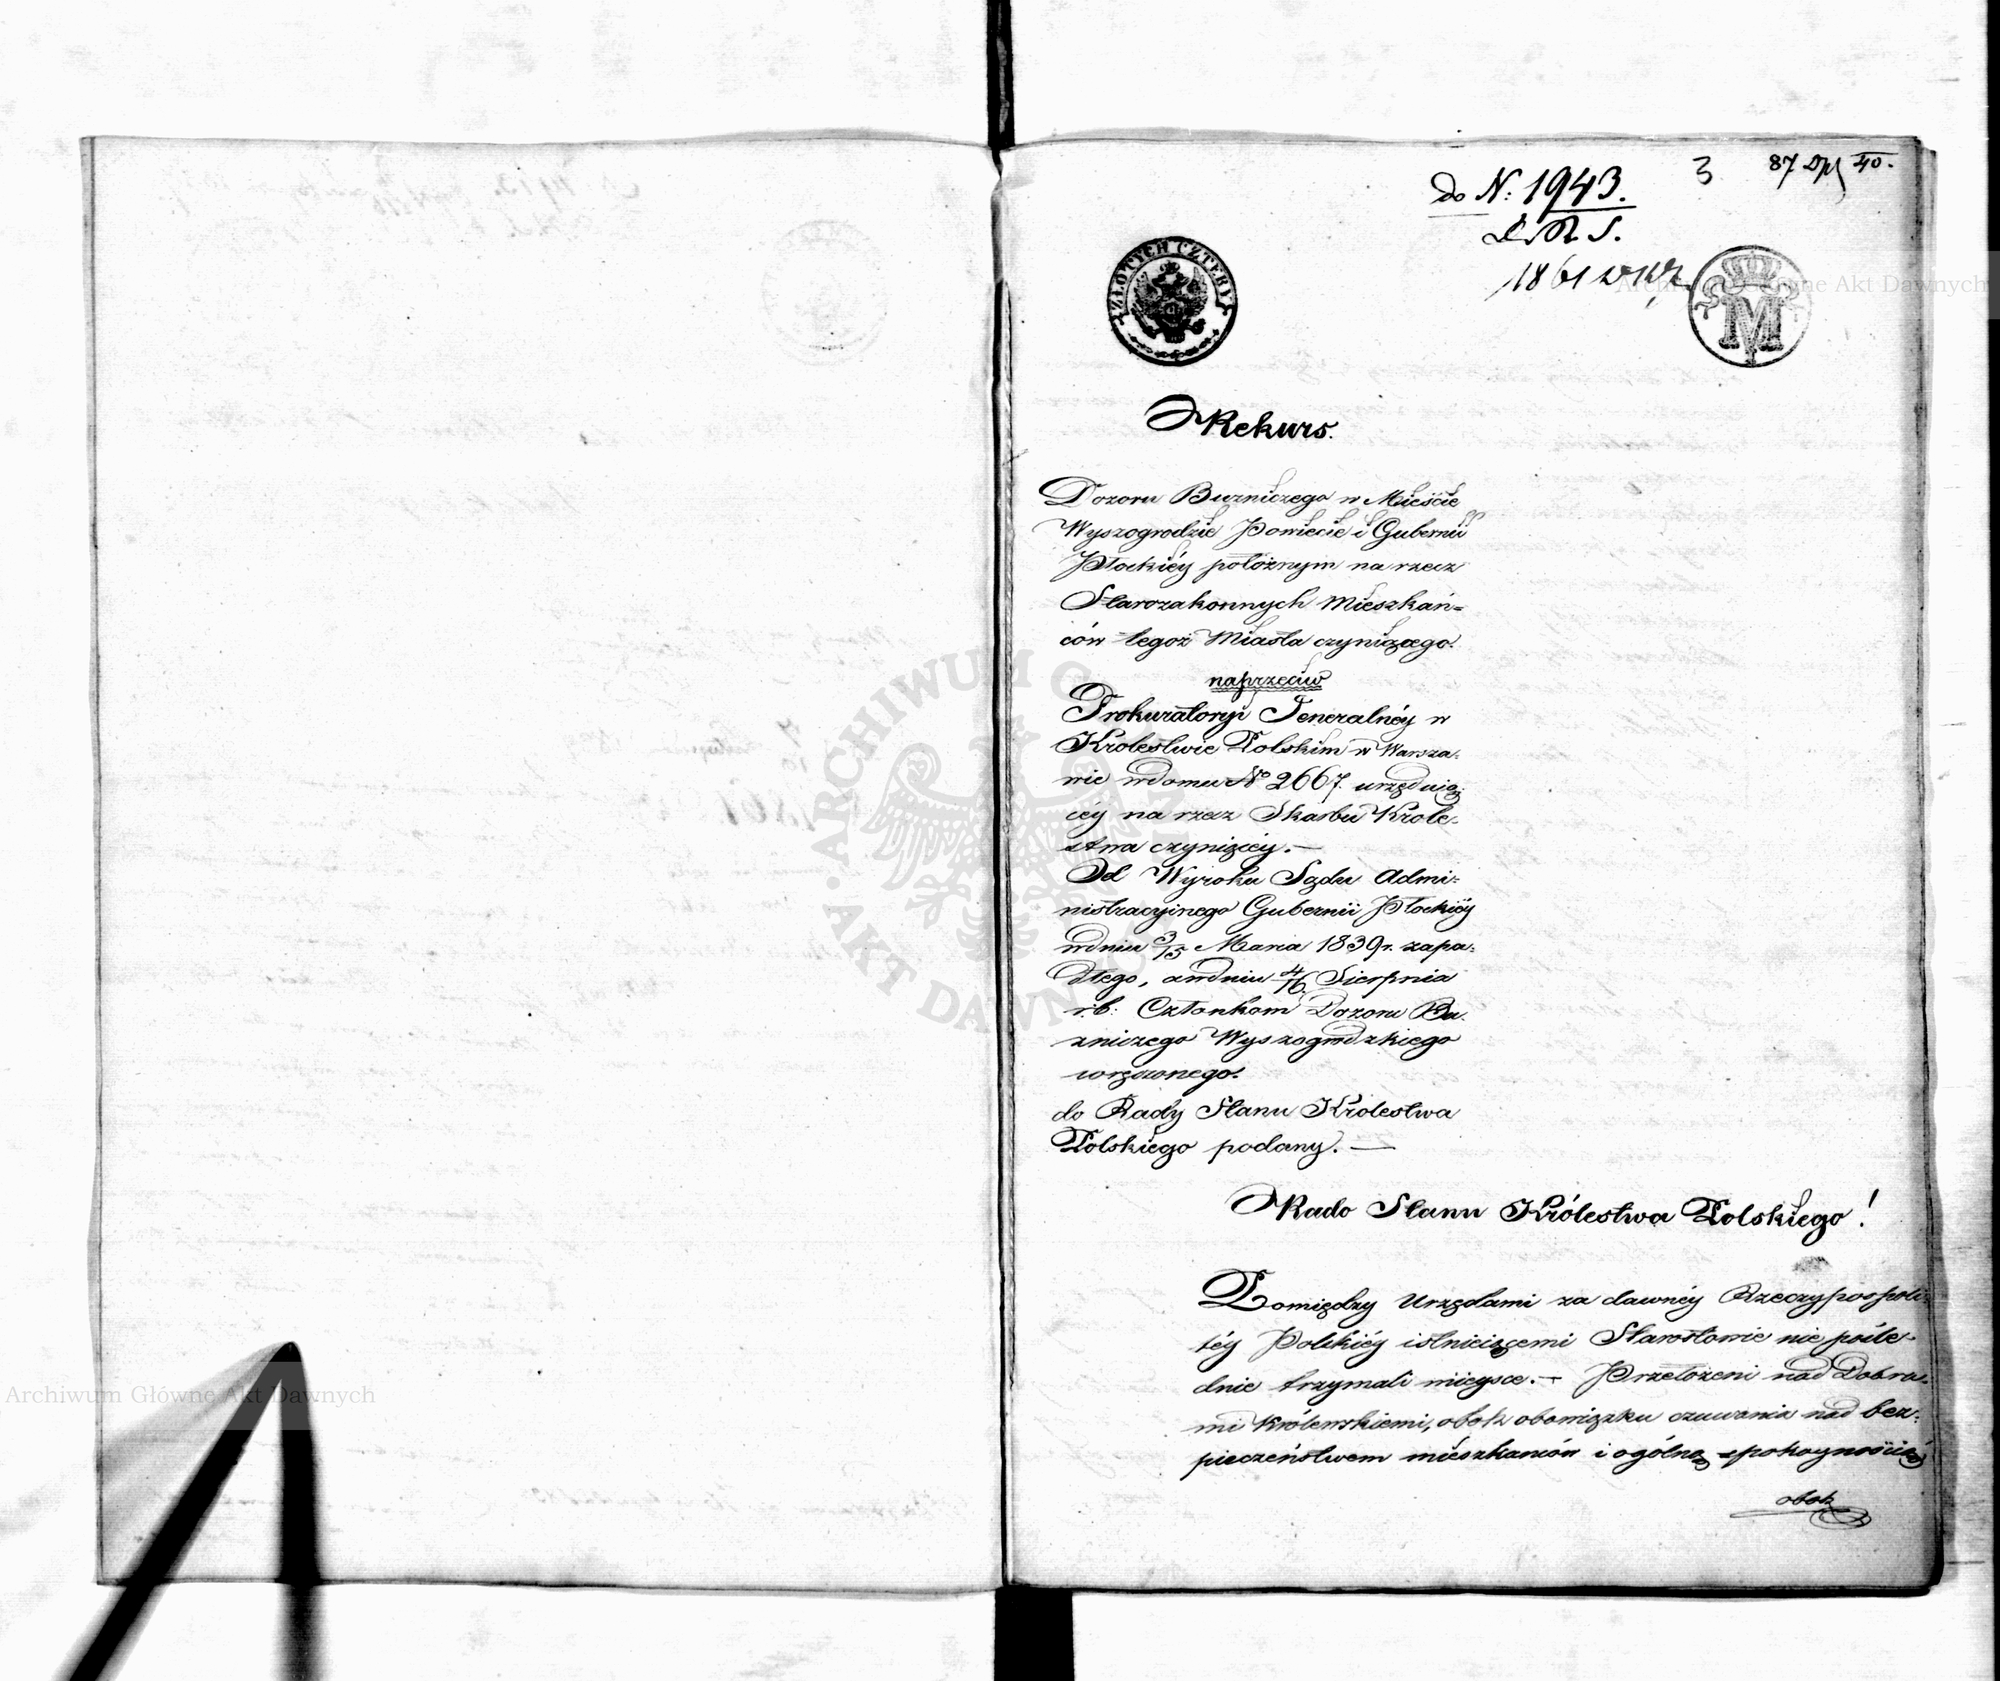 do N: 1943.
3
87 40.
1861
ZŁOTYCH CZTERY
M
Rekurs.
Dozoru Buzniczego w Mieście
Wyszogrodzie Powiecie i Gubernii
Płockiéy położnym na rzecz
Starozakonnych Mieszkań=
ców tegoż Miasta czyniącego.
naprzeciw
Prokuratoryi Jeneralnéy w
Krolestwie Polskim w Warsza-
wie w domu No 2667. urzęduią-
céy na rzecz Skarbu Krole-
stwa czyniącéy. —
Od Wyroku Sądu Admi-
nistracyinego Gubernii Płockiéy
w dniu 3/15 Marca 1839 r. zapa-
dłego, a w dniu 4/16 Sierpnia
r.b: Członkom Dozoru Bu-
zniczego Wyszogrodzkiego
wręczonego.
do Rady Stanu Królestwa
Polskiego podany. —
Rado Stanu Królestwa Polskiego!
Pomiędzy Urzędami za dawnéy Rzeczypospoli-
téy Polskiéy istnieiącemi Starostowie nie pośle-
dnie trzymali mieysce. — Przełożeni nad Dobra-
mi Królewskiemi, obok obowiązku czuwania nad bez-
pieczeństwem mieszkanców i ogólną spokoynością
obok
ARCHIWUM GŁÓWNE AKT DAWNYCH
Archiwum Główne Akt Dawnych
Archiwum Główne Akt Dawnych